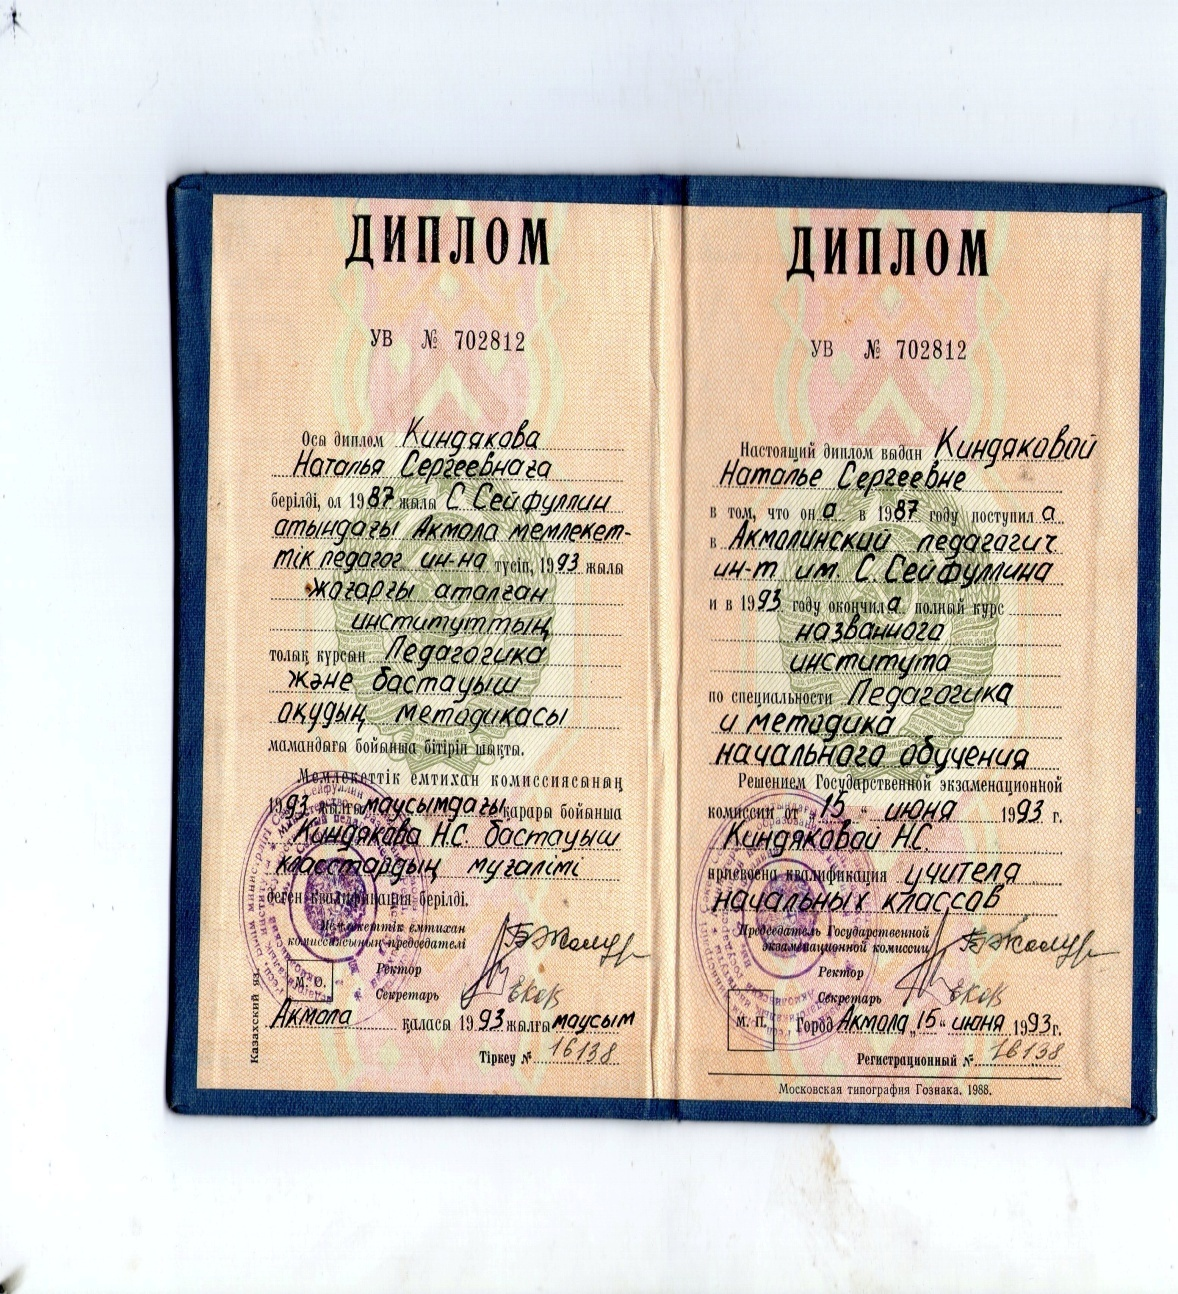 ДИПЛОМ
УВ № 702812
Осы диплом Киндякова
Наталья Сергеевнаға
берілді, ол 1987 жылы С. Сейфуллин
атындағы Акмола мемлекет-
тік педагог ин-на түсіп, 1993 жылы
жағарғы аталған
институттың
толық курсын Педагогика
және бастауыш
оқудың методикасы
мамандығы бойынша бітіріп шықты.
Мемлекеттік емтихан комиссиясының
1993 жылғы маусымдағы қарары бойынша
Киндякова Н.С. бастауыш
класстардың мұғалімі
деген квалификация берілді.
Мемлекеттік емтихан
комиссиясының председателі
Ректор
Секретарь
М. О.
Акмола қаласы 1993 жылғы маусым
Тіркеу № 16138
Казахский яз.
ДИПЛОМ
УВ № 702812
Настоящий диплом выдан Киндяковой
Наталье Сергеевне
в том, что он а в 1987 году поступил а
в Акмолинский педагогич
ин-т им. С. Сейфуллина
и в 1993 году окончил а полный курс
названного
института
по специальности Педагогика
и методика
начального обучения
Решением Государственной экзаменационной
комиссии от „15“ июня 1993 г.
Киндяковой Н.С.
присвоена квалификация учителя
начальных классов
Председатель Государственной
экзаменационной комиссии
Ректор
Секретарь
М. П.
Город Акмола „15“ июня 1993г.
Регистрационный № 16138
Московская типография Гознака. 1988.